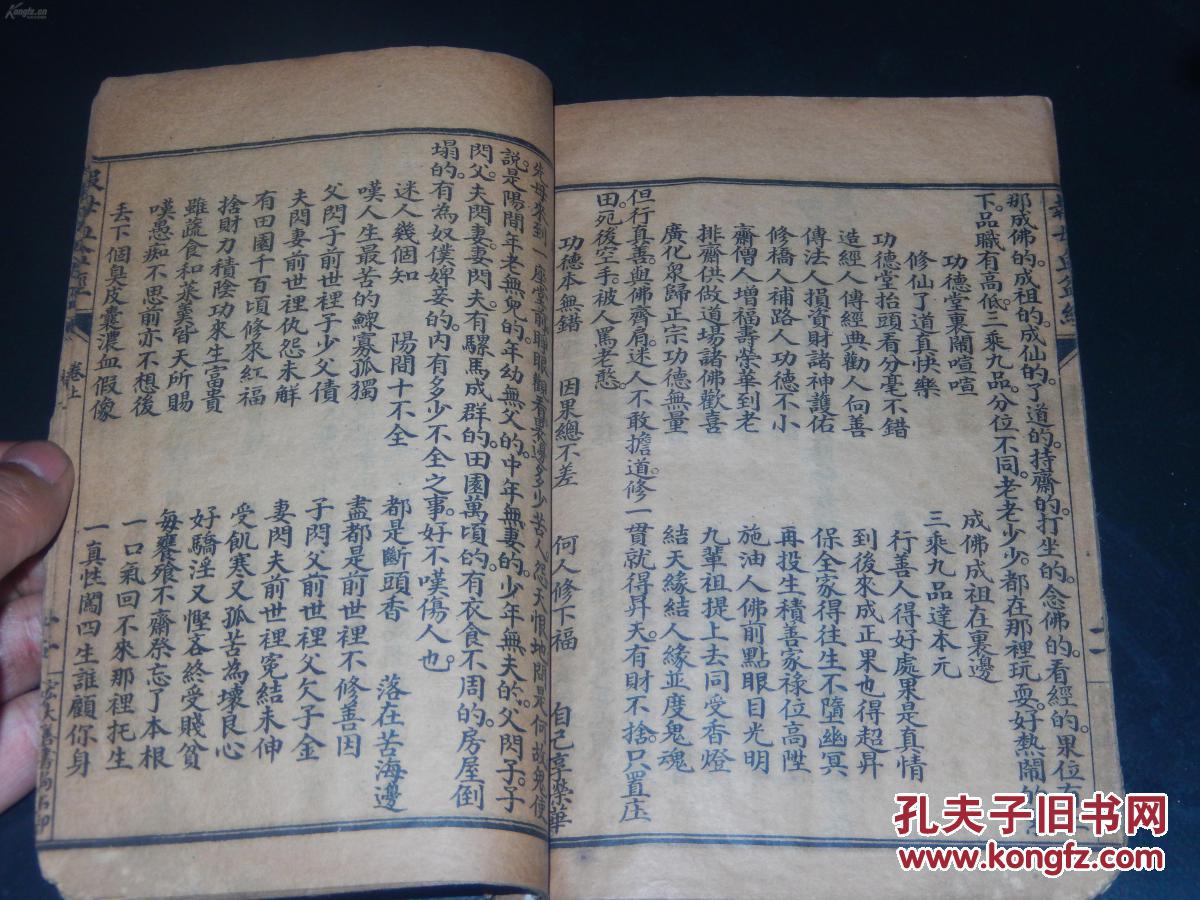 那成佛的。成祖的。成仙的。了道的。持齋的。打坐的。念佛的。看經的。果位有上
下。品職有高低。三乘九品。分位不同。老老少少。都在那裡玩耍。好熱鬧的
功德堂裏鬧喧喧 成佛成祖在裏邊
修仙了道真快樂 三乘九品達本元
功德堂抬頭看分毫不錯 行善人得好處果是真情
造經人傳經典勸人向善 到後來成正果也得超昇
傳法人損資財諸神護佑 保全家得往生不墮幽冥
修橋人補路人功德不小 再投生積善家祿位高陞
齋僧人增福壽榮華到老 施油人佛前點眼目光明
排齋供做道場諸佛歡喜 九輩祖提上去同受香燈
廣化衆歸正宗功德無量 結天緣結人緣並度鬼魂
但行真善。與佛齊肩。迷人不敢擔道。修一貫就得昇天。有財不捨。只置庄
田。死後空手。被人罵老憨。
功德本無錯 因果總不差 何人修下福 自己享榮華
先母來到一座堂前。睜眼觀看。裏邊多少苦人。怨天恨地。問是何故。鬼使
説。是陽間年老無兒的。年幼無父的。中年無妻的。少年無夫的。父閃子。子
閃父。夫閃妻。妻閃夫。有騾馬成群的。田園萬頃的。有衣食不周的。房屋倒
塌的。有為奴僕婢妾的。內有多少不全之事。好不嘆傷人也。
迷人幾個知 陽間十不全 都是斷頭香 落在苦海邊
嘆人生最苦的鰥寡孤獨 盡都是前世裡不修善因
父閃子前世裡子少父債 子閃父前世裡父欠子金
夫閃妻前世裡仇怨未解 妻閃夫前世裡寃結未伸
有田園千百頃修來紅福 受飢寒又孤苦為壞良心
捨財力積陰功來生富貴 好驕淫又慳吝終受賤貧
雖蔬食和菜羹皆天所賜 每饔飧不齋祭忘了本根
嘆愚痴不思前亦不想後 一口氣回不來那裡托生
丟下個臭皮囊濃血假像 一真性闖四生誰顧你身
卷上
宏大善書局石印
孔夫子旧书网
www.kongfz.com
Kongfz.cn